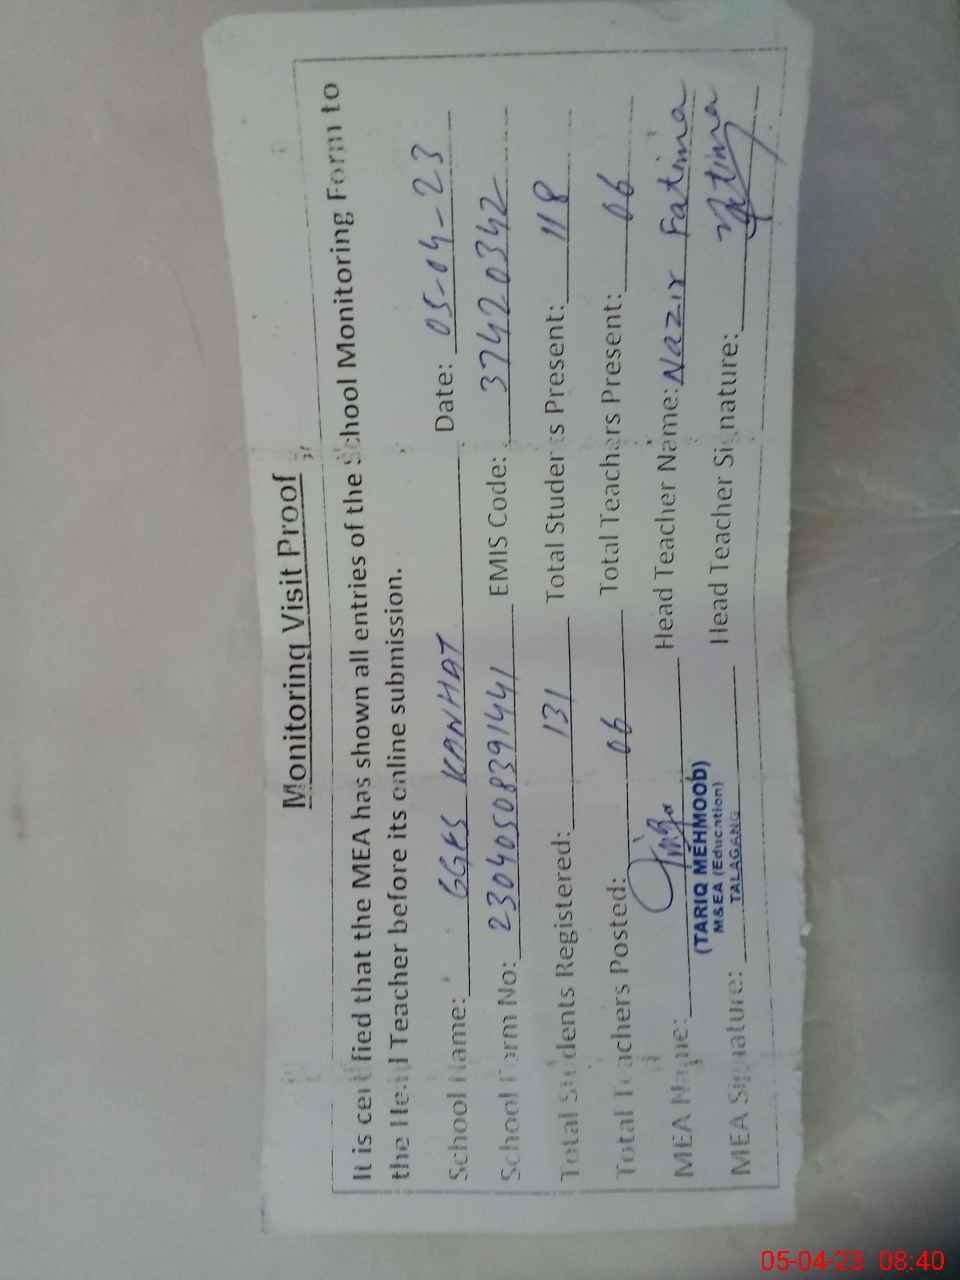 Monitoring Visit Proof
It is certified that the MEA has shown all entries of the School Monitoring Form to
the Head Teacher before its online submission.
School Name: GGES KANHAT Date: 05-04-23
School Form No: 23040508391441 EMIS Code: 37420342
Total Students Registered: 131 Total Students Present: 118
Total Teachers Posted: 06 Total Teachers Present: 06
MEA Name: Head Teacher Name: Nazir Fatima
(TARIQ MEHMOOB)
M&EA (Education)
TALAGANG
MEA Signature: Head Teacher Signature: Fatima
05-04-23 08:40